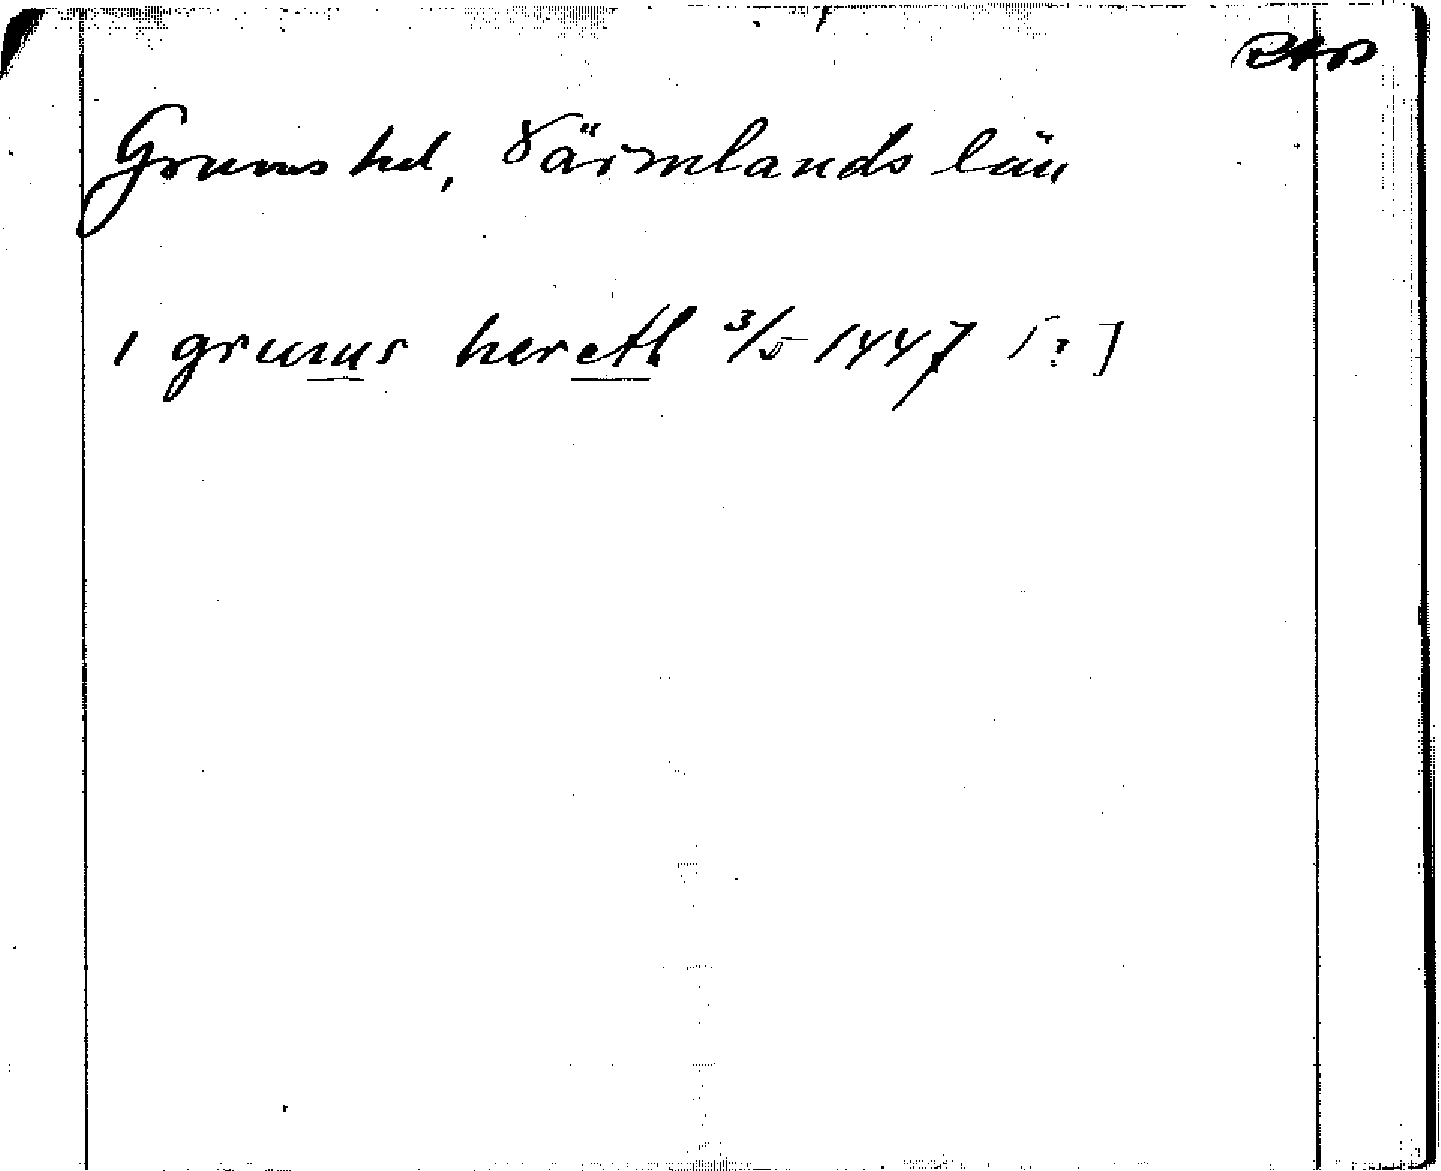 Grums hd, Värmlands län
i grumus herett 3/5 1447 [?]